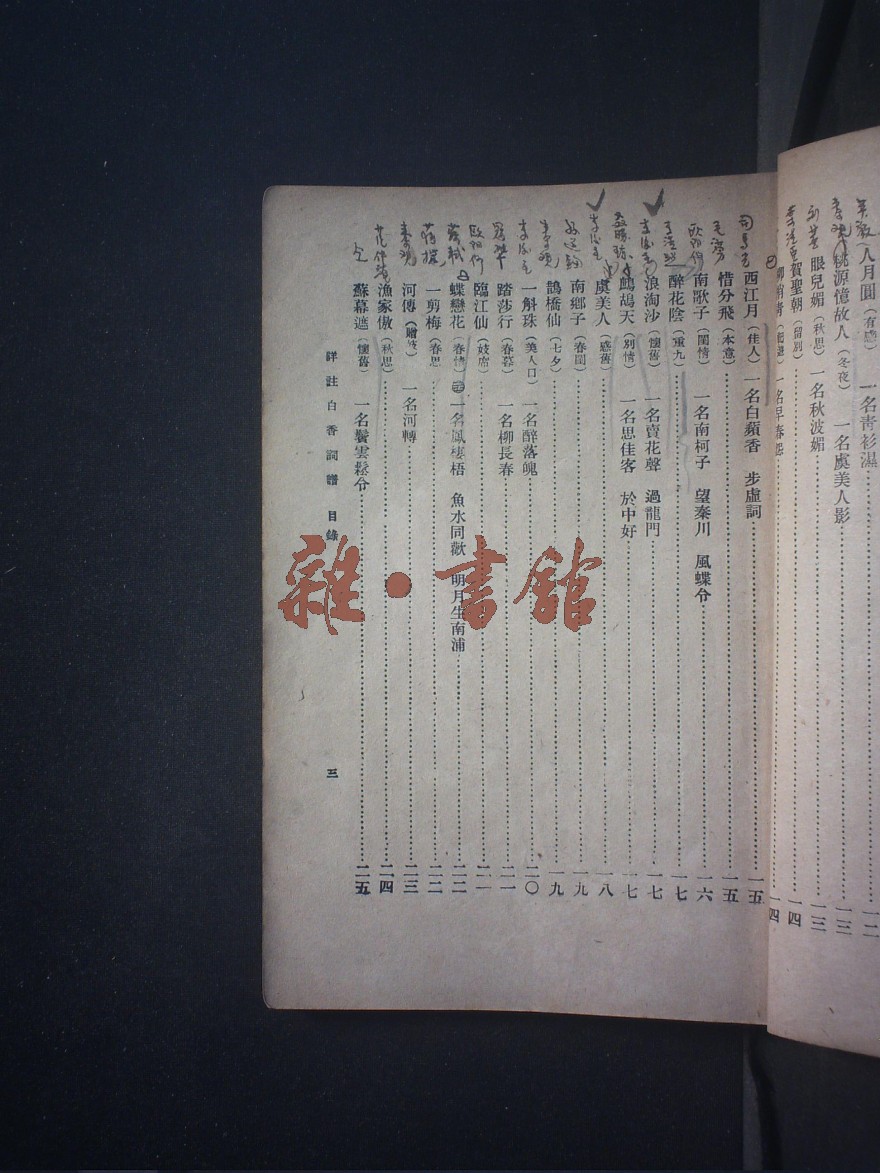 人月圓（有感） 一名青衫濕 一二
桃源憶故人（冬夜） 一名虞美人影 一三
眼兒媚（秋思） 一名秋波媚 一三
賀聖朝（留別） 一四
柳梢青 一名早春怨 一四
司馬光 西江月（佳人） 一名白蘋香 步虛詞 一五
毛滂 惜分飛（本意） 一五
歐陽修 南歌子（閨情） 一名南柯子 望秦川 風蝶令 一六
醉花陰（重九） 一七
李後主 浪淘沙（懷舊） 一名賣花聲 過龍門 一七
鷓鴣天（別情） 一名思佳客 於中好 一七
李後主 虞美人（感舊） 一八
南鄉子（春閨） 一九
秦觀 鵲橋仙（七夕） 一九
李後主 一斛珠（美人口） 一名醉落魄 二〇
踏莎行（春暮） 一名柳長春 二一
歐陽修 臨江仙（妓席） 二一
蘇軾 蝶戀花（春情） 一名鳳棲梧 魚水同歡 明月生南浦 二二
蔣捷 一剪梅（春思） 二二
秦觀 河傳（贈妓） 一名河轉 二三
范仲淹 漁家傲（秋思） 二四
仝 蘇幕遮（懷舊） 一名鬢雲鬆令 二五
詳註白香詞譜 目錄 三
雜·書館